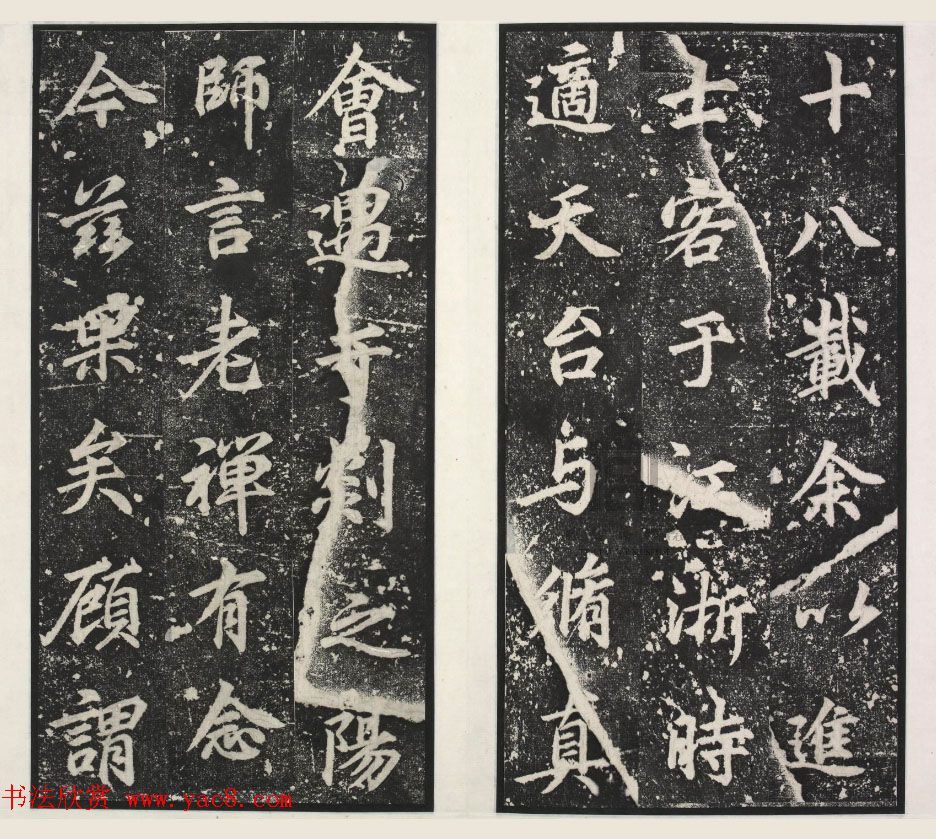 十八載余以進
士客于江浙時
適天台与脩真
會遇寺剡之陽
師言老禪有念
今茲果矣顧謂
书法欣赏 www.yac8.com